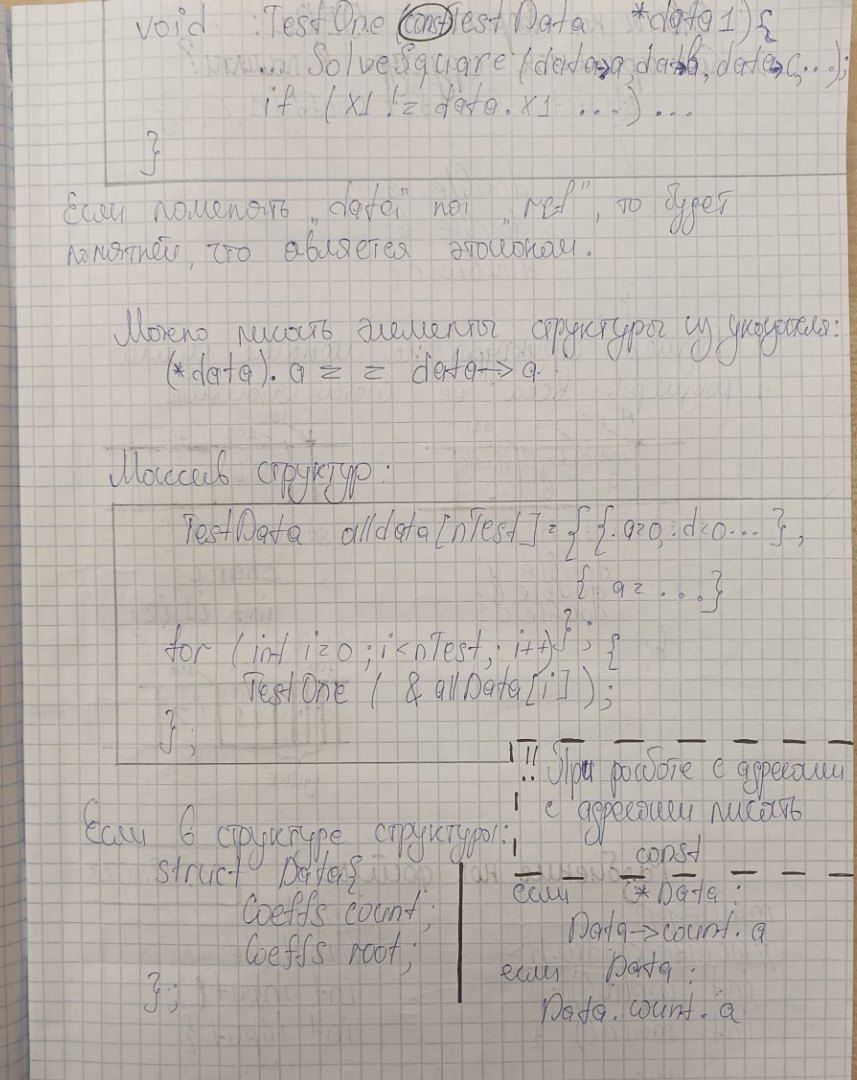 void TestOne (const TestData *data1){
... SolveSquare (data->a, data->b, data->c, ...);
if (x1 != data.x1 ...) ...
}
Если поменять „data" на „ref", то будет
понятней, что является эталоном.
Можно писать элементы структуры из указателя:
(*data).a = = data->a
Массив структур:
TestData alldata[nTest]= { {.a=0, .d=0... },
{.a= ...}
};
for (int i=0; i<nTest; i++) {
TestOne ( & allData[i] );
};
!! При работе с адресами
с адресами писать
const
Если в структуре структуры:
struct Data{
Coeffs count;
Coeffs root;
};
если (*Data:
Data->count.a
если Data:
Data.count.a